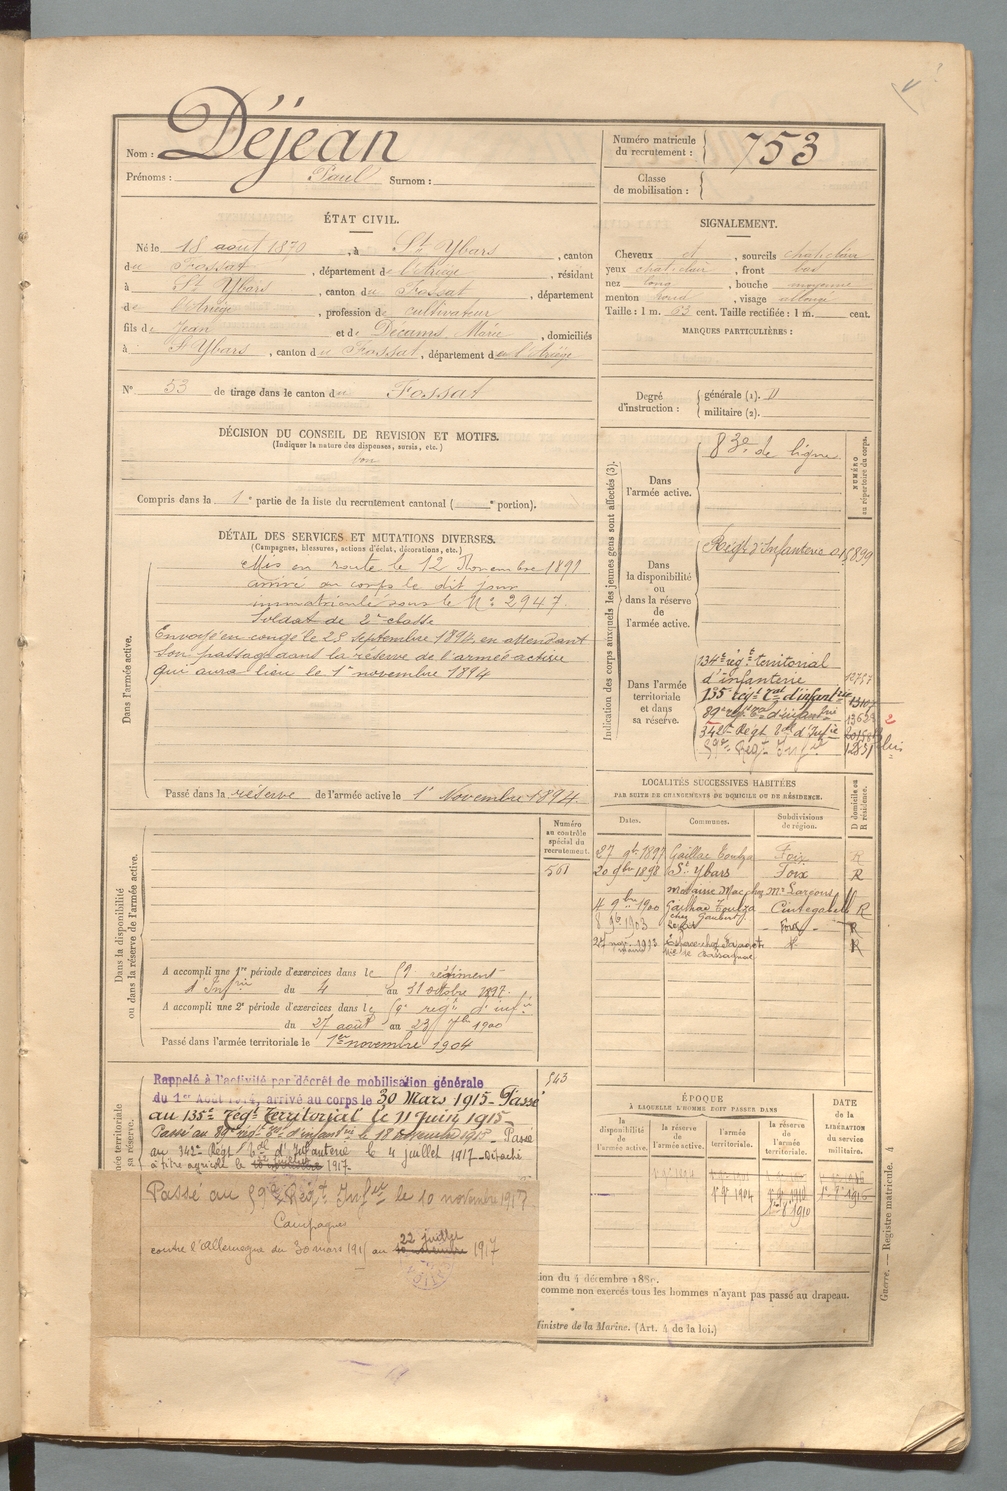 Nom : Déjean
Prénoms : Paul Surnom :
Numéro matricule du recrutement : 753
Classe de mobilisation :
ÉTAT CIVIL.
Né le 18 août 1870, à St Ybars, canton
du Fossat, département de l'Ariège, résidant
à St Ybars, canton du Fossat, département
de l'Ariège, profession de cultivateur
fils de Jean et de Décams Marie, domiciliés
à St Ybars, canton du Fossat, département de l'Ariège
N° 53 de tirage dans le canton du Fossat
SIGNALEMENT.
Cheveux et, sourcils chat clair
yeux chat clair, front bas
nez long, bouche moyenne
menton rond, visage allongé
Taille : 1 m. 63 cent. Taille rectifiée : 1 m. cent.
MARQUES PARTICULIÈRES :
Degré d'instruction : générale (1). 11
militaire (2).
DÉCISION DU CONSEIL DE REVISION ET MOTIFS.
(Indiquer la nature des dispenses, sursis, etc.)
bon
Compris dans la 1e partie de la liste du recrutement cantonal ( e portion).
DÉTAIL DES SERVICES ET MUTATIONS DIVERSES.
(Campagnes, blessures, actions d'éclat, décorations, etc.)
Dans l'armée active.
Mis en route le 12 Novembre 1891
arrivé au corps le dit jour
immatriculé sous le N° 2947.
Soldat de 2e classe
Envoyé en congé le 25 septembre 1894 en attendant
son passage dans la réserve de l'armée active
qui aura lieu le 1er novembre 1894
Passé dans la réserve de l'armée active le 1er Novembre 1894.
Indication des corps auxquels les jeunes gens sont affectés (3).
NUMÉRO au répertoire du corps.
Dans l'armée active.
83e de ligne
Dans la disponibilité ou dans la réserve de l'armée active.
Régt d'Infanterie 015899
Dans l'armée territoriale et dans sa réserve.
134e régt territorial
d'infanterie
135e régt tal d'infanterie
89e régt tal d'infanterie
342e Régt tal d'Infie
59e Régt Infie
LOCALITÉS SUCCESSIVES HABITÉES
PAR SUITE DE CHANGEMENTS DE DOMICILE OU DE RÉSIDENCE.
D domicile ou R résidence.
Dates. Communes. Subdivisions de région.
27 9bre 1897 Gaillac Toulza Foix R
20 9bre 1898 St Ybars Foix R
4 9bre 1900 Gailhac Toulza Cintegabelle R
Foix R
Numéro au contrôle spécial du recrutement.
561
Dans la disponibilité ou dans la réserve de l'armée active.
A accompli une 1re période d'exercices dans le 59 régiment
d'Infrie du 4 au 31 octobre 1897.
A accompli une 2e période d'exercices dans le 59e régt d'infie
du 27 août au 23 7bre 1900
Passé dans l'armée territoriale le 1er novembre 1904
543
Rappelé à l'activité par décret de mobilisation générale
du 1er Août 1914, arrivé au corps le 30 Mars 1915 - Passé
au 135e Régt Territorial le 11 juin 1915
Passé au 89e régt tal d'infanterie le 18 novembre 1915 - Passé
au 342e Régt tal d'Infanterie le 4 juillet 1917 - Détaché
à titre agricole le 1917 -
Passé au 59e Régt Infie le 10 novembre 1917
Campagnes
contre l'Allemagne du 30 mars 1915 au 22 juillet 1917
ÉPOQUE
À LAQUELLE L'HOMME DOIT PASSER DANS
la disponibilité de l'armée active. la réserve de l'armée active. l'armée territoriale. la réserve de l'armée territoriale.
DATE de la LIBÉRATION du service militaire.
1er 9bre 1904
1er 8bre 1910
tion du 4 décembre 1889.
comme non exercés tous les hommes n'ayant pas passé au drapeau.
Ministre de la Marine. (Art. 4 de la loi.)
Guerre. — Registre matricule. 4